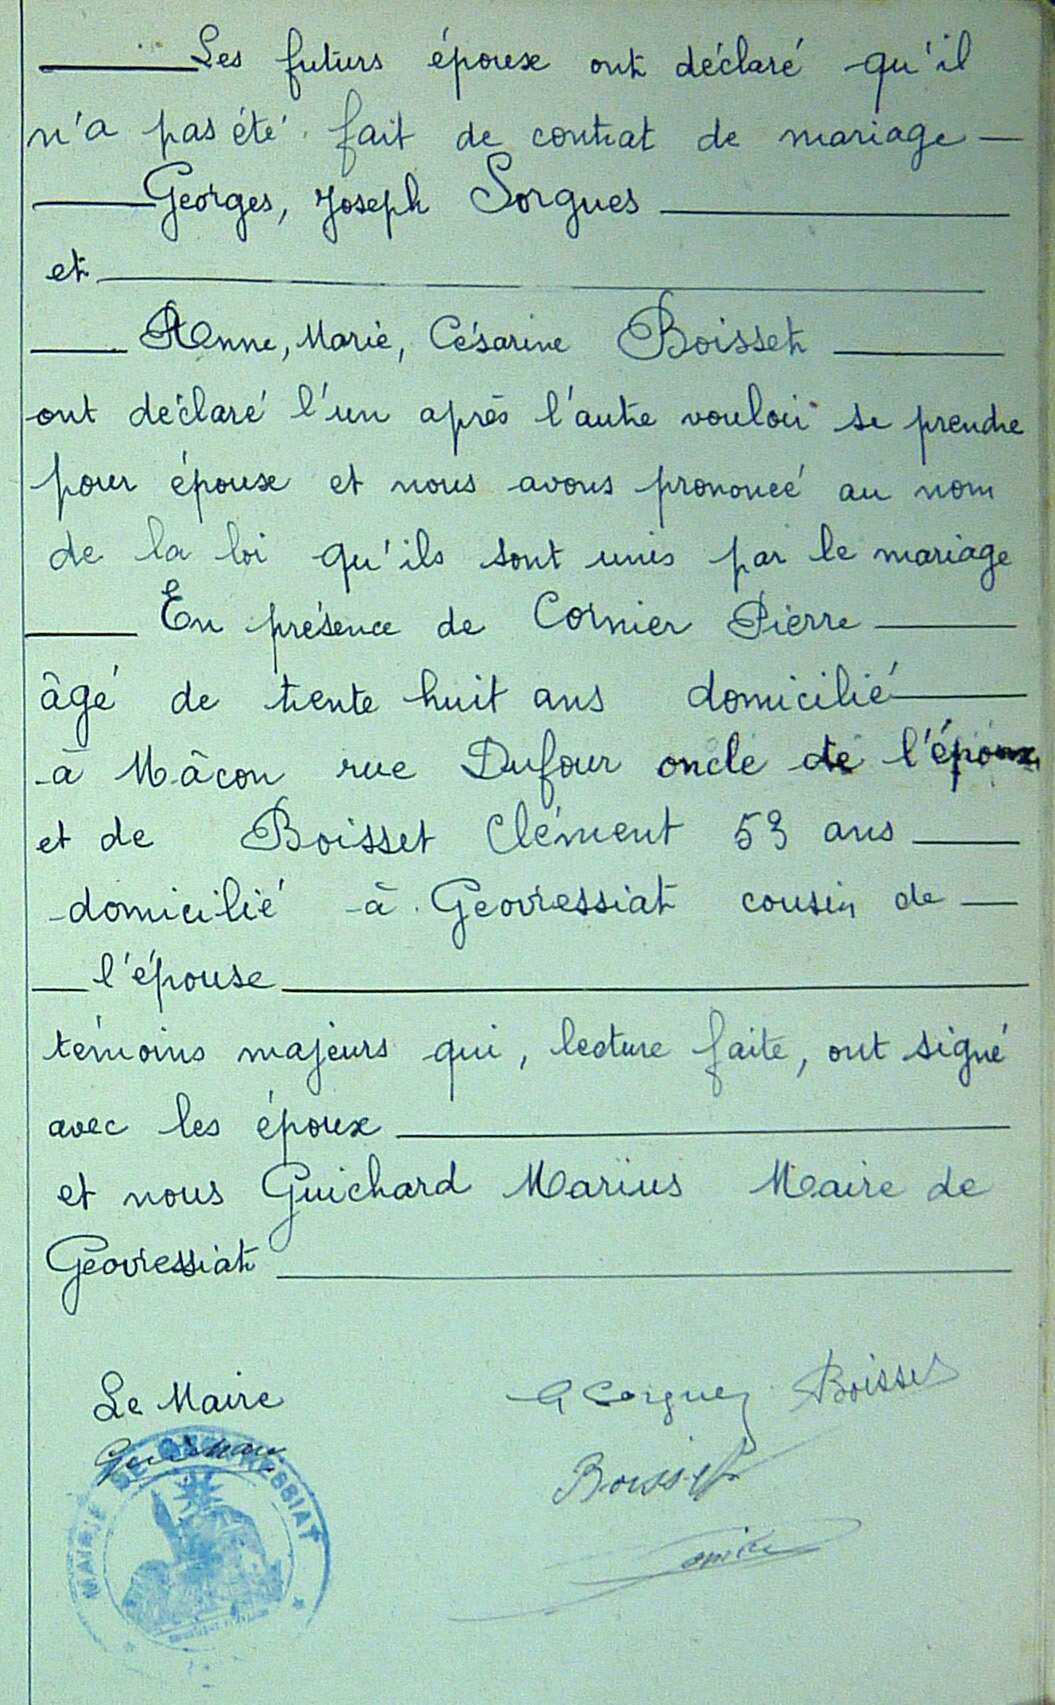 Les futurs époux ont déclaré qu'il
n'a pas été fait de contrat de mariage
Georges, Joseph Sorgues
et
Anne, Marie, Césarine Boisset
ont déclaré l'un après l'autre vouloir se prendre
pour époux et nous avons prononcé au nom
de la loi qu'ils sont unis par le mariage
En présence de Cornier Pierre
âgé de trente huit ans domicilié
à Mâcon rue Dufour oncle de l'époux
et de Boisset Clément 53 ans
domicilié à Geovressiat cousin de
l'épouse
témoins majeurs qui, lecture faite, ont signé
avec les époux
et nous Guichard Marius Maire de
Geovressiat
Le Maire
G Sorgues Boisset
Boisset
MAIRIE DE GEOVRESSIAT